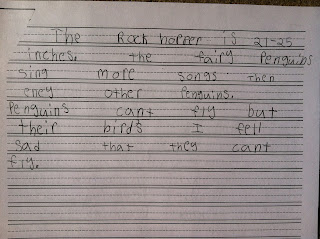 The Rock hopper is 21-25
inches. the fairy Penguins
sing more songs then
eney other Penguins.
Penguins cant fly but
their birds I fell
sad that they cant
fly.